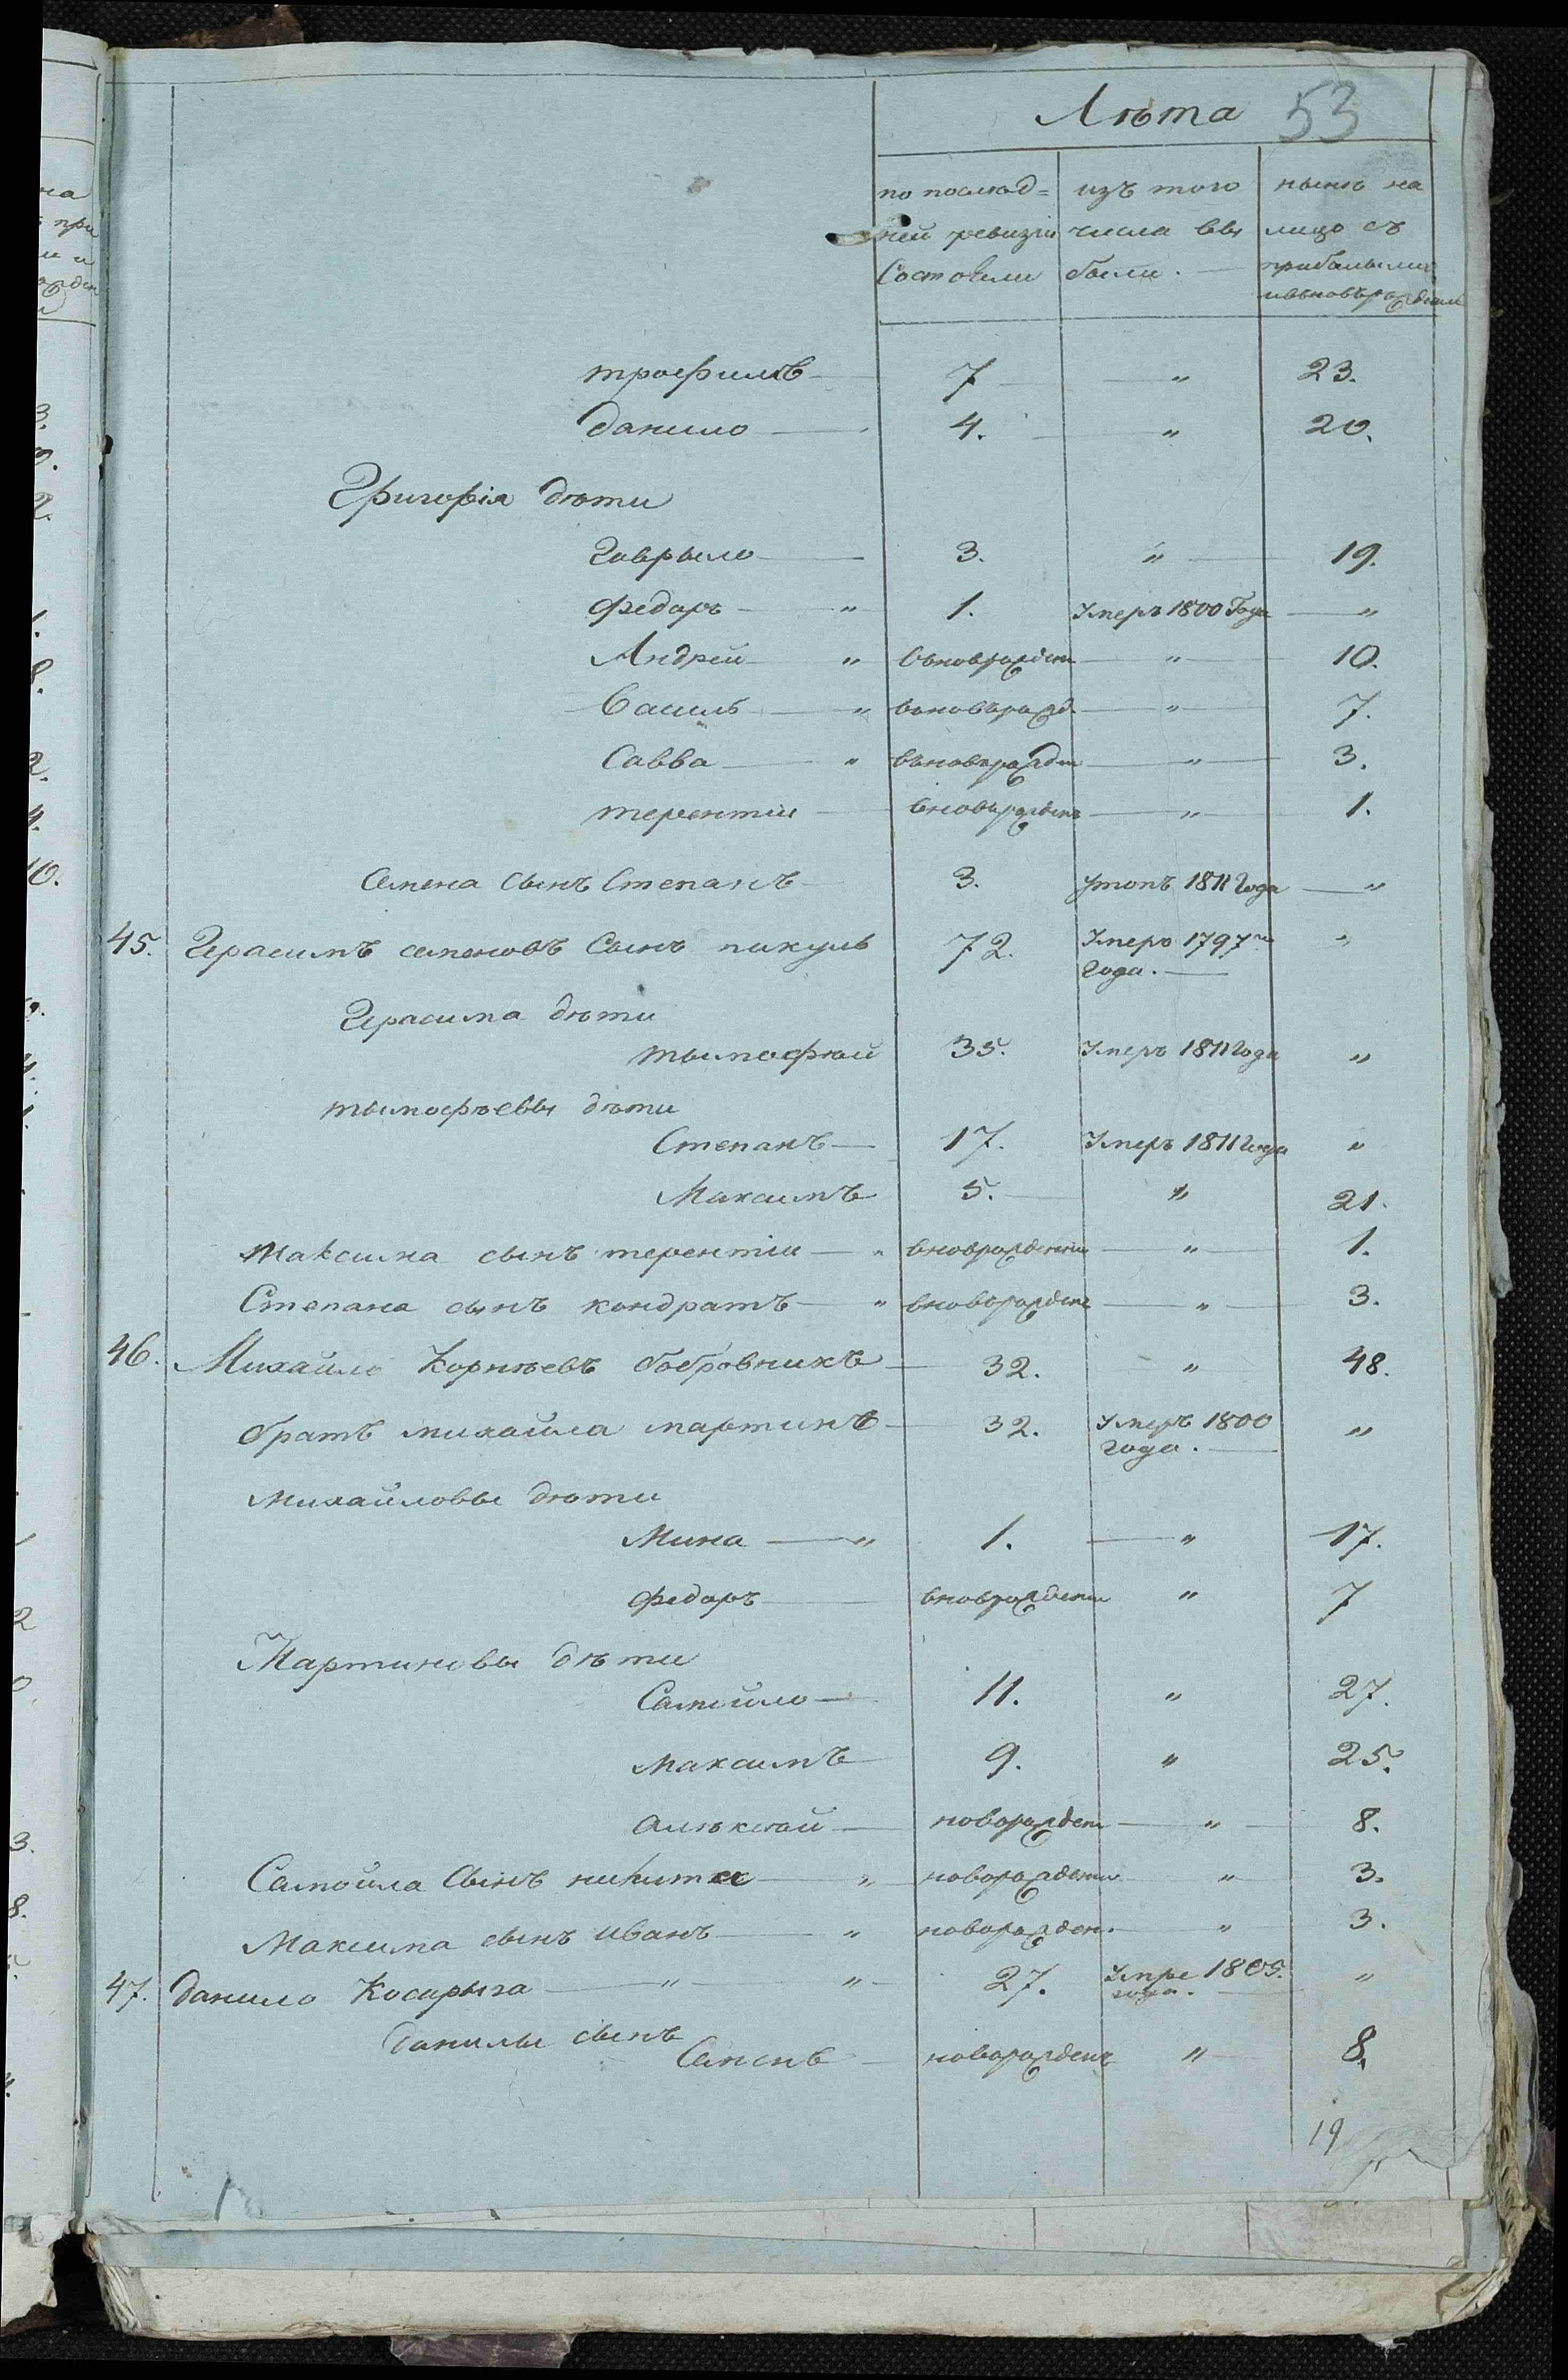 Лѣта 53
по послѣд= ней ревизіи Состояли
изъ того числа вы были.
нынѣ на лицо съ прибылыми
трофимъ 7 „ 23.
данило 4. „ 20.
Григорія дѣти
Гаврыло 3. „ 19.
федоръ „ 1. Умеръ 1800 Года „
Андрей „ вьноврожден „ 10.
Василь „ вьноворожд. „ 7.
Савва „ вьноворожден „ 3.
терентій вновърожденъ „ 1.
Семена Сынъ Степанъ 3. утопъ 1811 Года „
45. Герасимъ семеновъ Сынъ пикуль 72. Умеръ 1797го „
Года.
Герасима дѣти
тымофѣй 35. Умеръ 1811 Года „
тымофѣевы дѣти
Степанъ 17. Умеръ 1811 Года „
Максимъ 5. „ 21.
Максима сынъ терентій „ вноврожденны „ 1.
Степана сынъ кондратъ „ вноворожден „ 3.
46. Михайло Корнѣевъ бобровникъ 32. „ 48.
братъ михайла мартинъ 32. Умеръ 1800 „
года.
Михайловы дѣти
Мина „ 1. „ 17.
федоръ вноврожденны „ 7
Мартиновы дѣти
Самойло 11. „ 27.
Максимъ 9. „ 25.
алѣксѣй новорожден „ 8.
Самойла Сынъ никита „ новорожденны „ 3.
Максима сынъ иванъ „ новорожден. „ 3.
47. данило Косарыга „ „ 27. Умре 1805. „
года.
данилы сынъ
Семенъ новорожденъ „ 8.
19